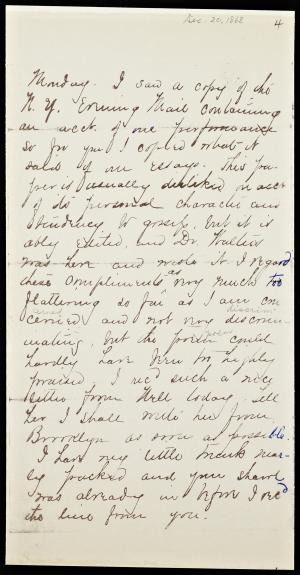 Dec. 20, 1868
4
Monday. I saw a copy of the
N. Y. Evening Mail containing
an acct. of our performance
so for you I copied what it
said of our essays. This pa-
per is usually disliked on acct
of its personal character and
tendency to gossip, but it is
ably edited, and Dr. Hallis
was here and wrote it. I regard
these compliments as very much too
flattering so far as I am con
cerned and not very discrim
inating, but the poem could
hardly have been too highly
praised. I rec'd such a nice
letter from Nell today. tell
her I shall write her from
Brooklyn as soon as possible.
I have my little trunk near-
ly packed and your shawl
was already in before I rec'd
the line from you.